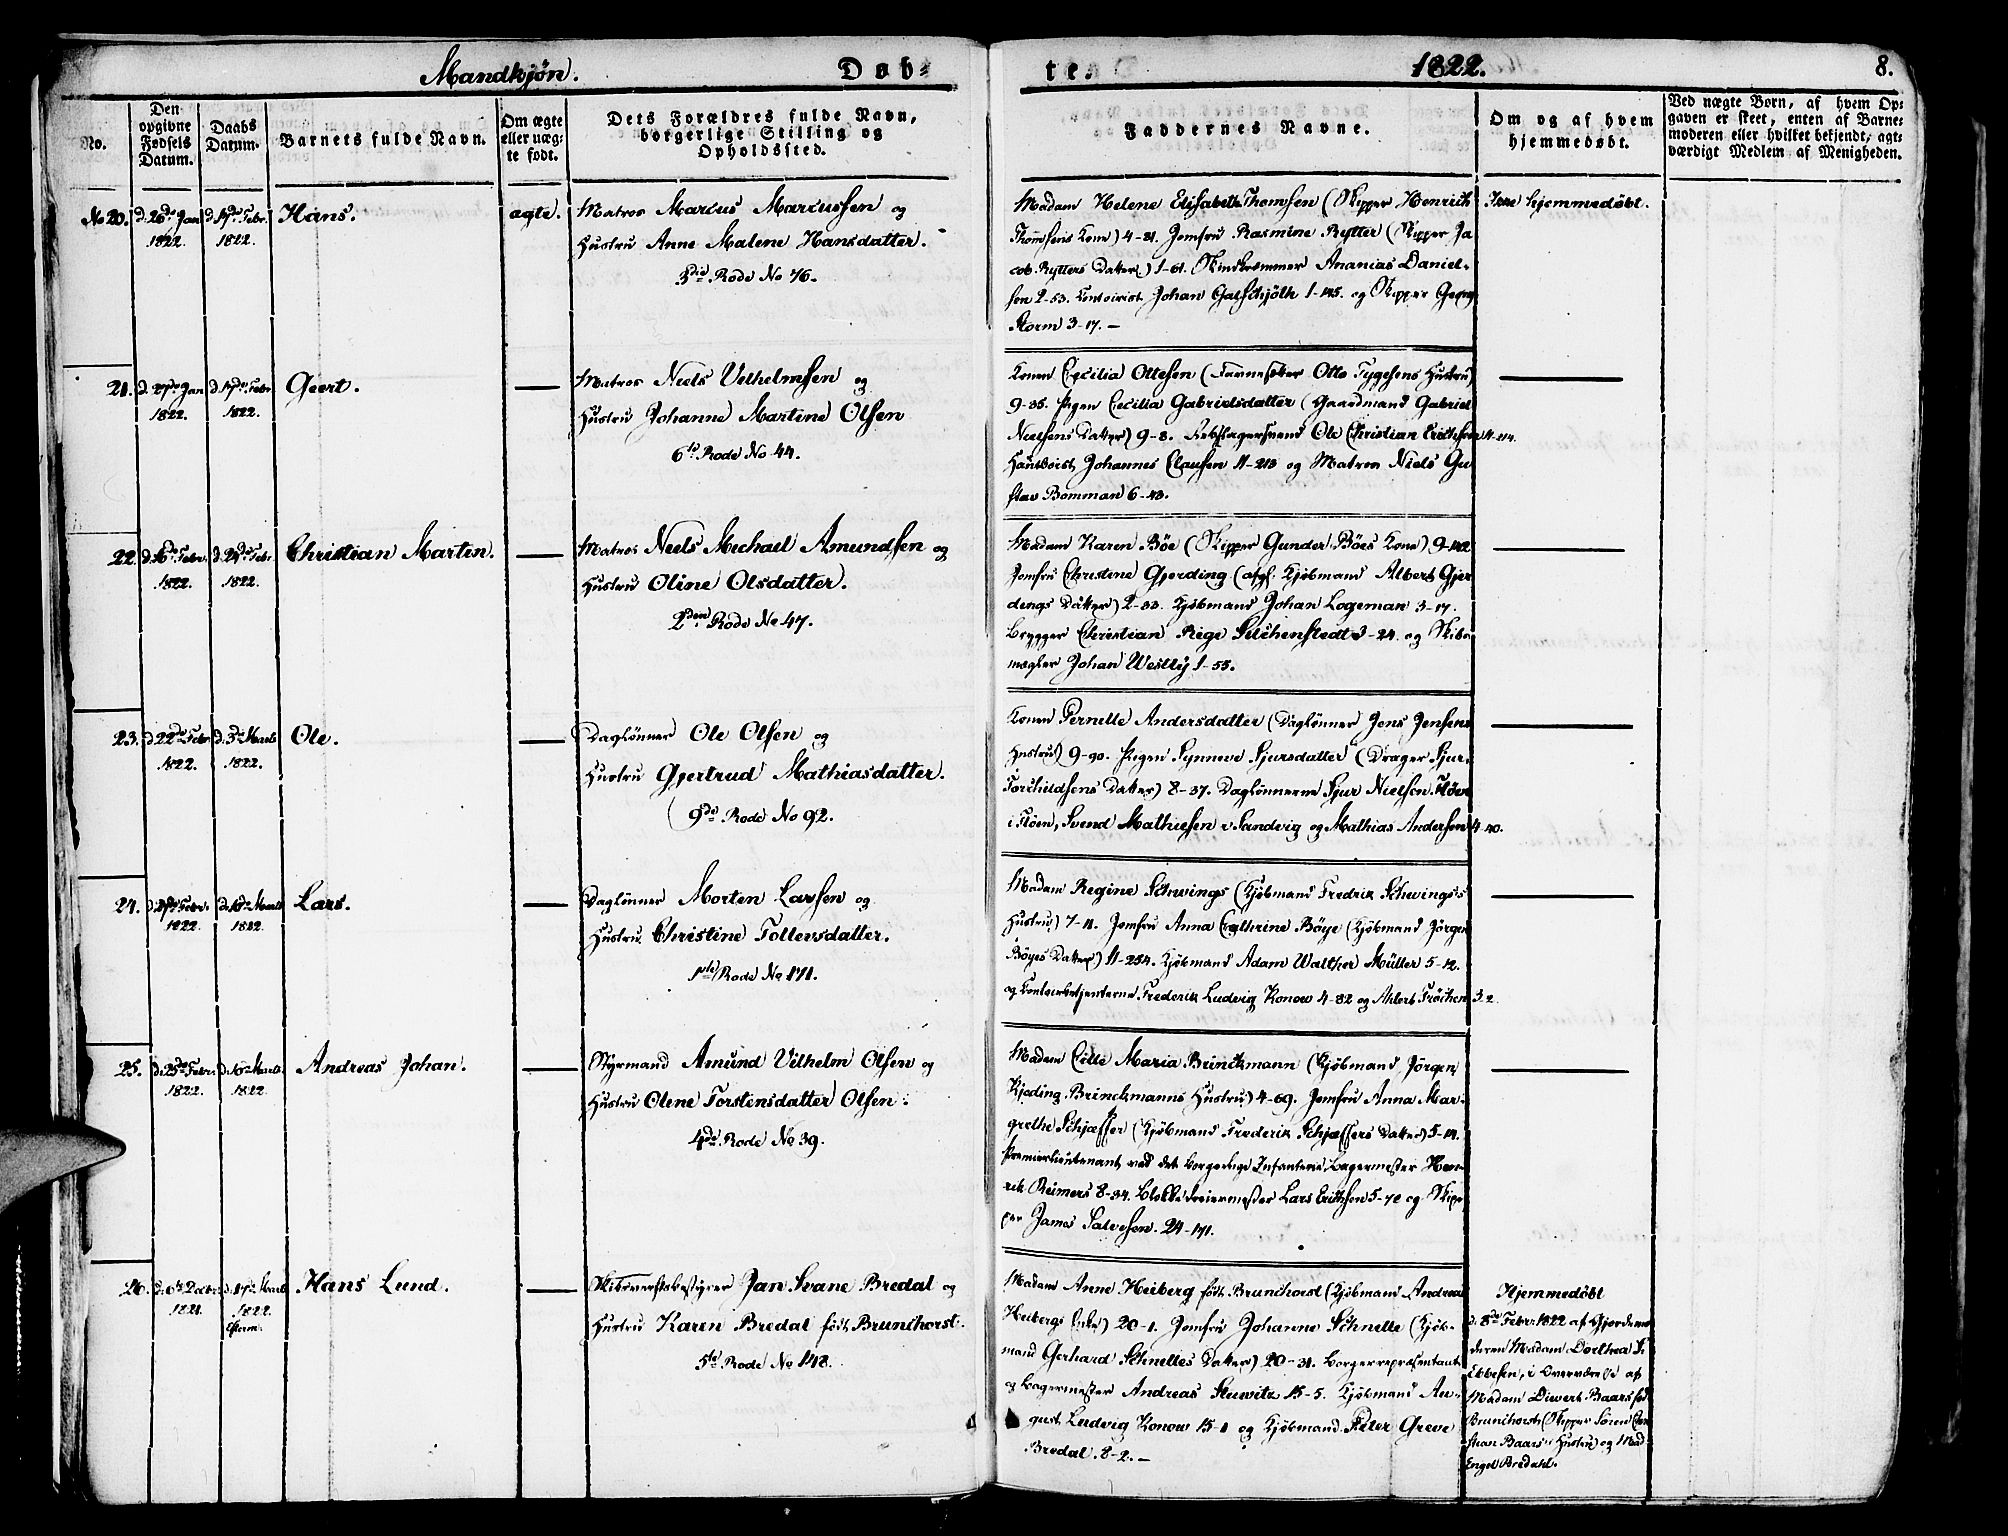 Mandkjøn.
Døb-
te.
1822.
8.
No.
Den opgivne Fødsels Datum.
Daabs Datum.
Barnets fulde Navn.
Om ægte eller uægte født.
Dets Forældres fulde Navn, borgerlige Stilling og Opholdssted.
Faddernes Navne.
Om og af hvem hjemmedøbt.
Ved uægte Børn, af hvem Opgaven er skeet, enten af Barnemoderen eller hvilket bekjendt, agtværdigt Medlem af Menigheden.
No 20.
d. 26de Jan
1822.
d. 17de Febr.
1822.
Hans.
ægte.
Matros Marcus Marcussen og
Hustru Anne Malene Hansdatter.
3die Rode No 76.
Madam Helene Elisabeth Thomsen (Skipper Henrich
Thomsens Kone) 4-81. Jomfru Rasmine Rytter (Skipper Ja
cob Rytters Datter) 1-61. Skindkræmmer Ananias Daniel-
sen 2-53. Contoirist Johan Galschjöth 1-145. og Skipper Georg
Storm 3-17. —
Ikke hjemmedøbt.
21.
d. 27de Jan
1822.
d. 17de Febr
1822.
Geert.
—
Matros Niels Vilhelmsen og
Hustru Johanne Martine Olsen
6te Rode No 44.
Konen Cecilia Ottesen (Otto Tygesens Hustru)
9-35. Pigen Cecilia Gabrielsdatter (Gaardmand Gabriel
Nielsens Datter) 9-8. Rebslagersvend Ole Christian Erichsen 11-214.
Hautboist Johannes Clausen 11-213 og Matros Niels Gu
stav Bomman 6-43.
—
22.
d. 16de Febr.
1822.
d. 24de Febr.
1822.
Christian Martin.
—
Matros Niels Michael Amundsen og
Hustru Oline Olsdatter.
2den Rode No 47.
Madam Karen Böe (Skipper Gunder Böes Kone) 9-142.
Jomfru Christine Gjerding (afg. Kjöbmand Albert Gjer
dings Datter) 2-33. Kjöbmand Johan Logeman 3-17.
Brygger Christian Rige Sichenstedt 3-24. og Skibs
mægler Johan Westly 1-55.
—
23.
d. 22de Febr
1822.
d. 3die Marts
1822.
Ole.
—
Daglönner Ole Olsen og
Hustru Gjertrud Mathiasdatter.
(9de Rode No 92.
Konen Pernille Andersdatter (Daglönner Jens Jensens
Hustru) 9-90. Pigen Synneve Sjursdatter (Drager Sjur
Torchildsens Datter) 8-37. Daglönnerne Sjur Nielsen Flöen
i Flöen, Svend Mathiesen i Sandvig og Mathias Andersen 4-40.
—
24.
d. 27de Febr.
1822.
d. 10de Marts
1822.
Lars.
—
Daglönner Morten Larssen og
Hustru Christine Tollevsdatter.
1ste Rode No 171.
Madam Regine Schwings (Kjöbmand Fredrik Schwings's
Hustru) 7-11. Jomfru Anna Cathrine Böye (Kjöbmand Jörgen
Böyes Datter) 11-254. Kjöbmand Adam Walther Müller 5-12.
og Contoirbetjenterne Frederik Ludvig Konow 4-82 og Ahlert Tröchen 3-2.
—
25.
d. 25de Febr.
1822.
d. 10de Marts
1822.
Andreas Johan.
—
Styrmand Amund Vilhelm Olsen og
Hustru Olene Torstensdatter Olsen.
4de Rode No 39.
Madam Cille Maria Brinckmann (Kjöbmand Jörgen
Kjeding Brinckmanns Hustru) 4-69. Jomfru Anna Mar-
grethe Schjæffer (Kjöbmand Frederik Schjæffers Datter) 5-14.
Premierlieutenant ved det borgerlige Infanterie, Bagermester Hen-
rik Reimers 8-34. Blokkedreiermester Lars Erichsen 5-72 og Skip
per James Salvesen. 24-171.
—
26.
d. 6te Decbr.
1821.
d. 17de Marts
1822.
Efterm.
Hans Lund.
—
Skibsværftsbestyrer Jan Svane Bredal og
Hustru Karen Bredal født Brunchorst.
5te Rode No 148.
Madam Anne Heiberg født Brunchorst (Kjöbmand Andreas
Heibergs Enke) 20-1. Jomfru Johanne Schnelle (Kjöb-
mand Gerhard Schnelles Datter) 20-31. Borgerrepræsentant
og Bagermester Andreas Stuwitz 15-5. Kjöbmand Au-
gust Ludvig Konow 15-1 og Kjöbmand Peter Greve
Bredal. 8-2. —
Hjemmedøbt
d. 8de Febr. 1822 af Gjordemo
deren Madam Dorthea
Ebbesen, i Overværelse af
Madam Diwert Baars fød
Brunchorst (Skipper Sören Chri
stian Baars Hustru) og Mad
Engel Bredahl.